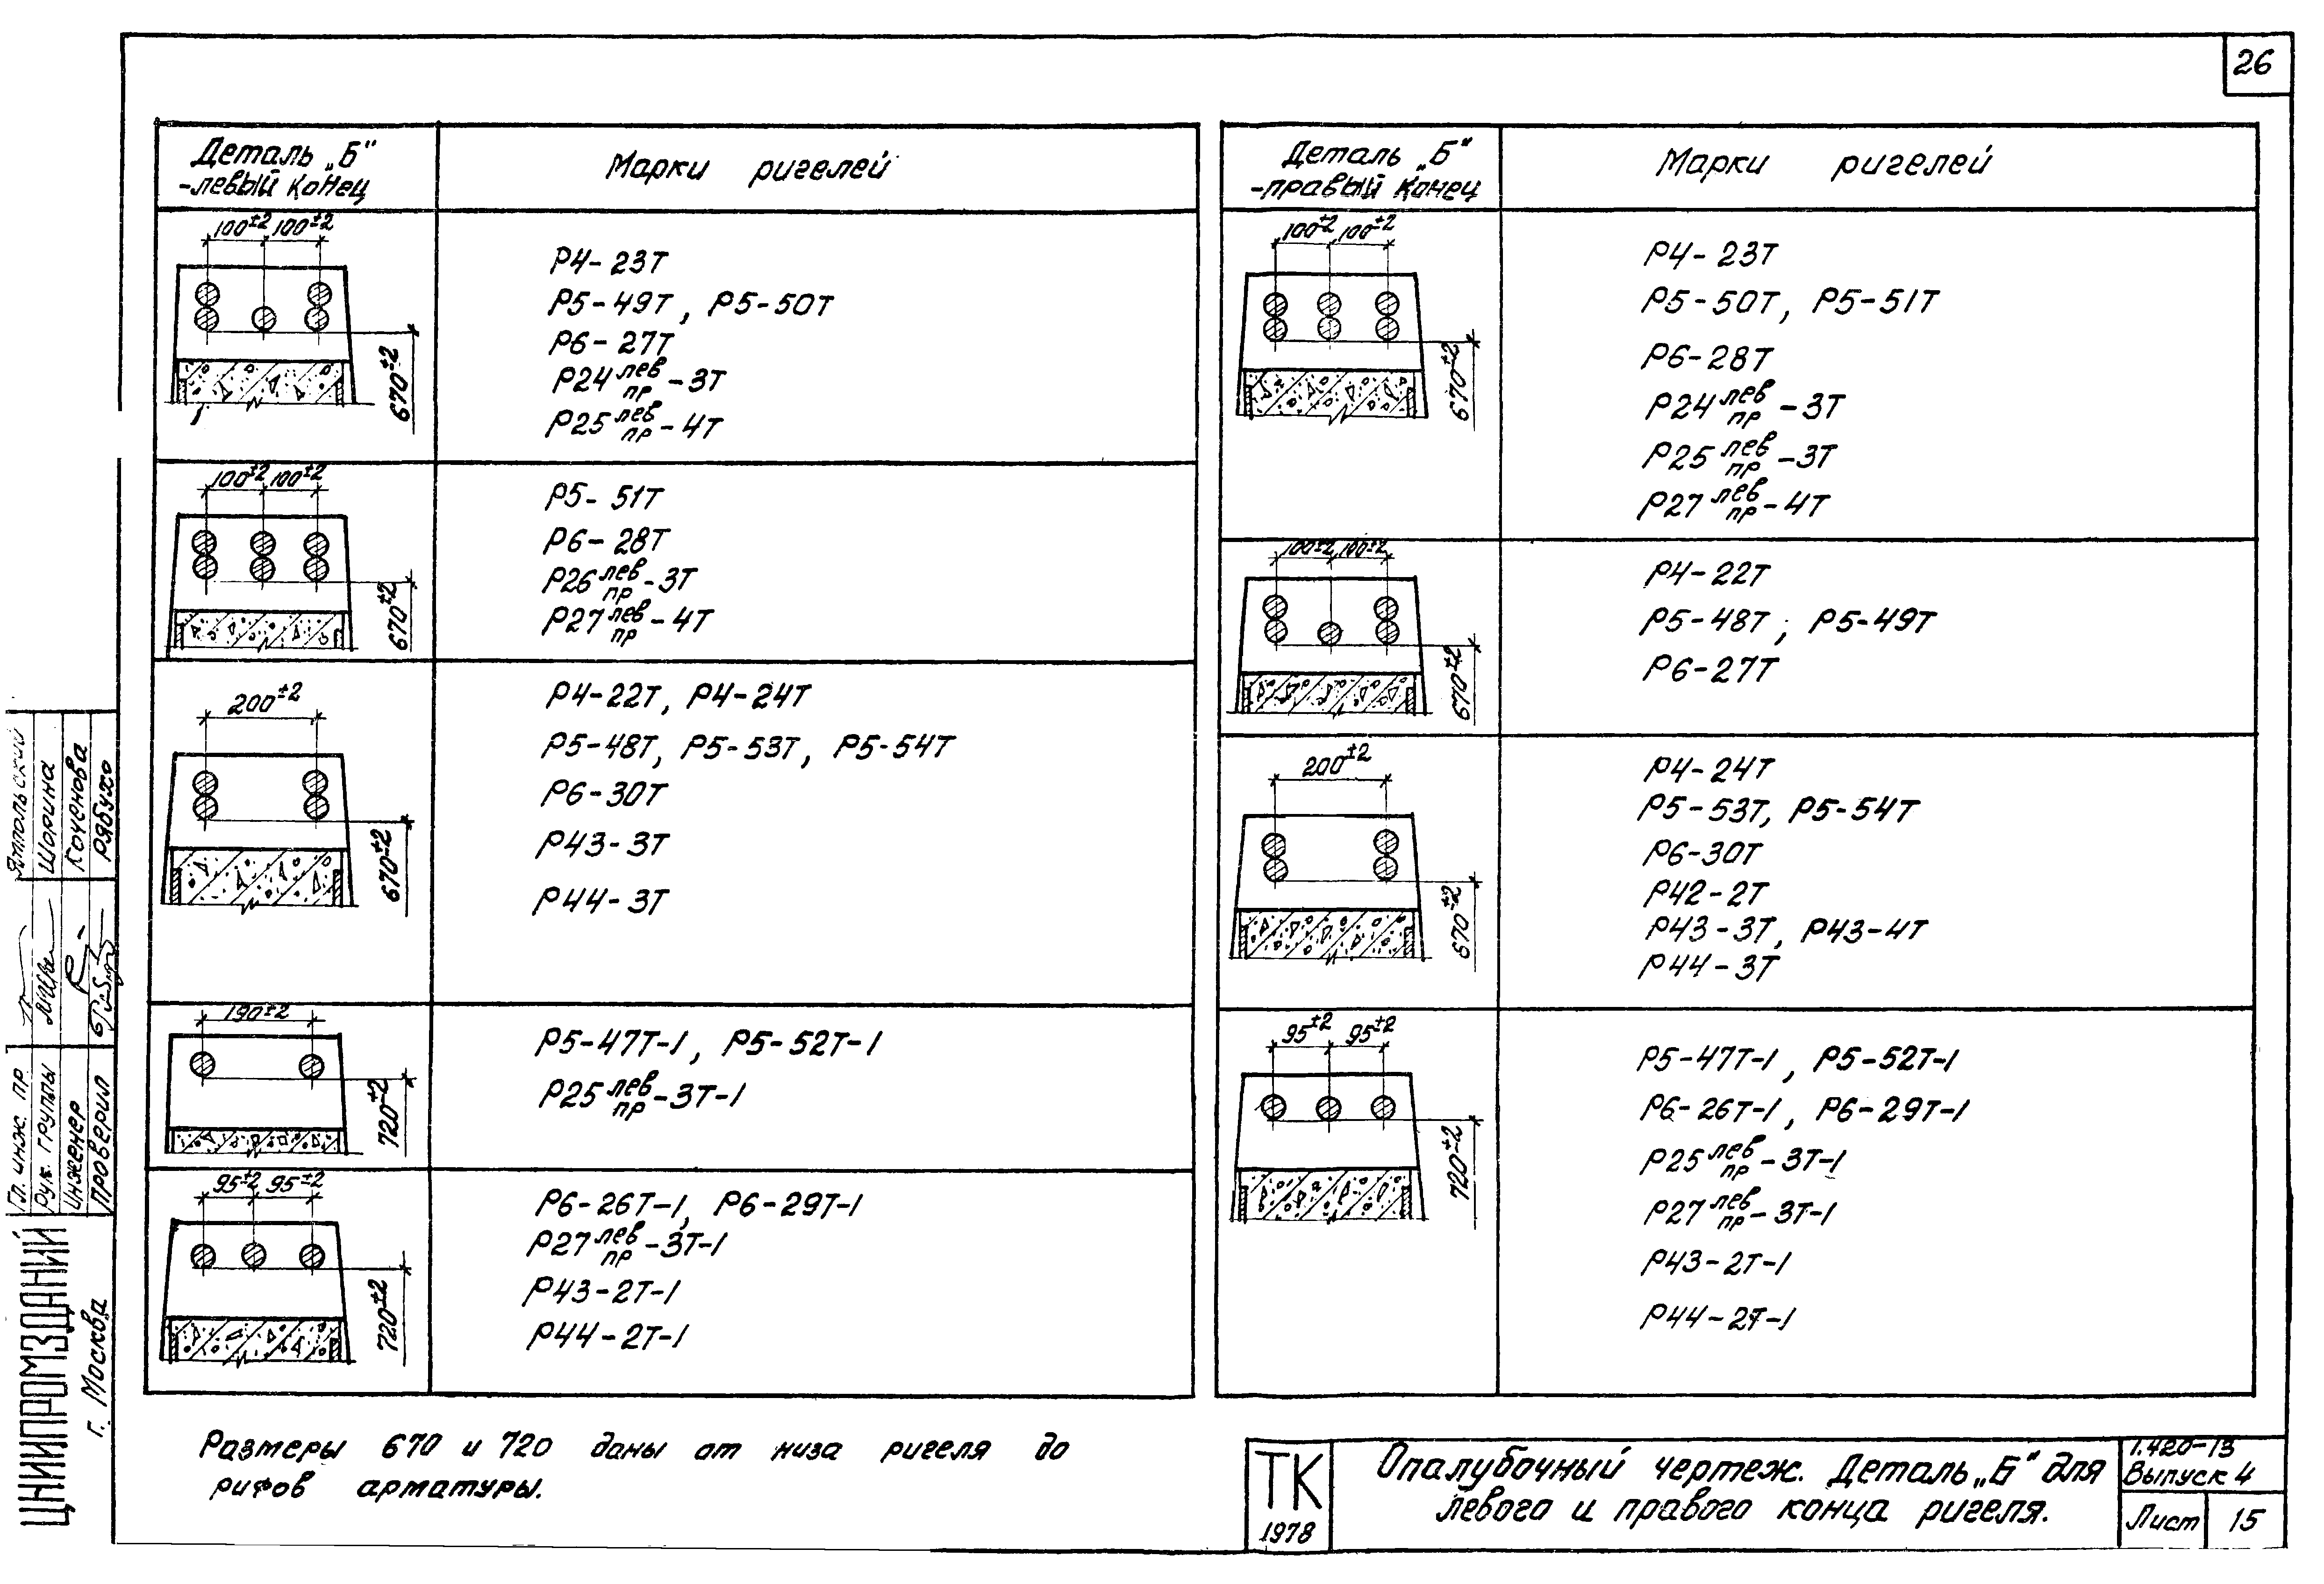 26
Деталь „Б"
-левый конец
Марки ригелей
100±2 100±2
670±2
Р4-23Т
Р5-49Т, Р5-50Т
Р6-27Т
Р24 лев/пр -3Т
Р25 лев/пр -4Т
100±2 100±2
670±2
Р5-51Т
Р6-28Т
Р26 лев/пр -3Т
Р27 лев/пр -4Т
200±2
670±2
Р4-22Т, Р4-24Т
Р5-48Т, Р5-53Т, Р5-54Т
Р6-30Т
Р43-3Т
Р44-3Т
190±2
720±2
Р5-47Т-1, Р5-52Т-1
Р25 лев/пр -3Т-1
95±2 95±2
720±2
Р6-26Т-1, Р6-29Т-1
Р27 лев/пр -3Т-1
Р43-2Т-1
Р44-2Т-1
Деталь „Б"
-правый конец
Марки ригелей
100±2 100±2
670±2
Р4-23Т
Р5-50Т, Р5-51Т
Р6-28Т
Р24 лев/пр -3Т
Р25 лев/пр -3Т
Р27 лев/пр -4Т
100±2 100±2
670±2
Р4-22Т
Р5-48Т, Р5-49Т
Р6-27Т
200±2
670±2
Р4-24Т
Р5-53Т, Р5-54Т
Р6-30Т
Р42-2Т
Р43-3Т, Р43-4Т
Р44-3Т
95±2 95±2
720±2
Р5-47Т-1, Р5-52Т-1
Р6-26Т-1, Р6-29Т-1
Р25 лев/пр -3Т-1
Р27 лев/пр -3Т-1
Р43-2Т-1
Р44-2Т-1
Размеры 670 и 720 даны от низа ригеля до
рифов арматуры.
ТК
1978
Опалубочный чертеж. Деталь „Б" для
левого и правого конца ригеля.
1.420-13
Выпуск 4
Лист 15
ЦНИИПРОМЗДАНИЙ
г. Москва
Гл. инж. пр
Рук. группы Шорина
Инженер Коченова
Проверил Рябухо